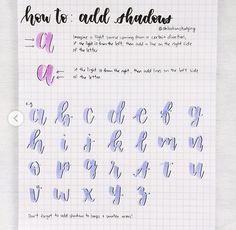 how to: add shadows
a
Imagine a light source coming from a certain direction,
if the light is from the left, then add a line on the right side
of the letter.
a
if the light is from the right, then add lines on the left side
of the letter.
e.g.
a b c d e f g
h i j k l m n
o p q r s t u
v w x y z
Don't forget to add shadow to loops & smaller areas!